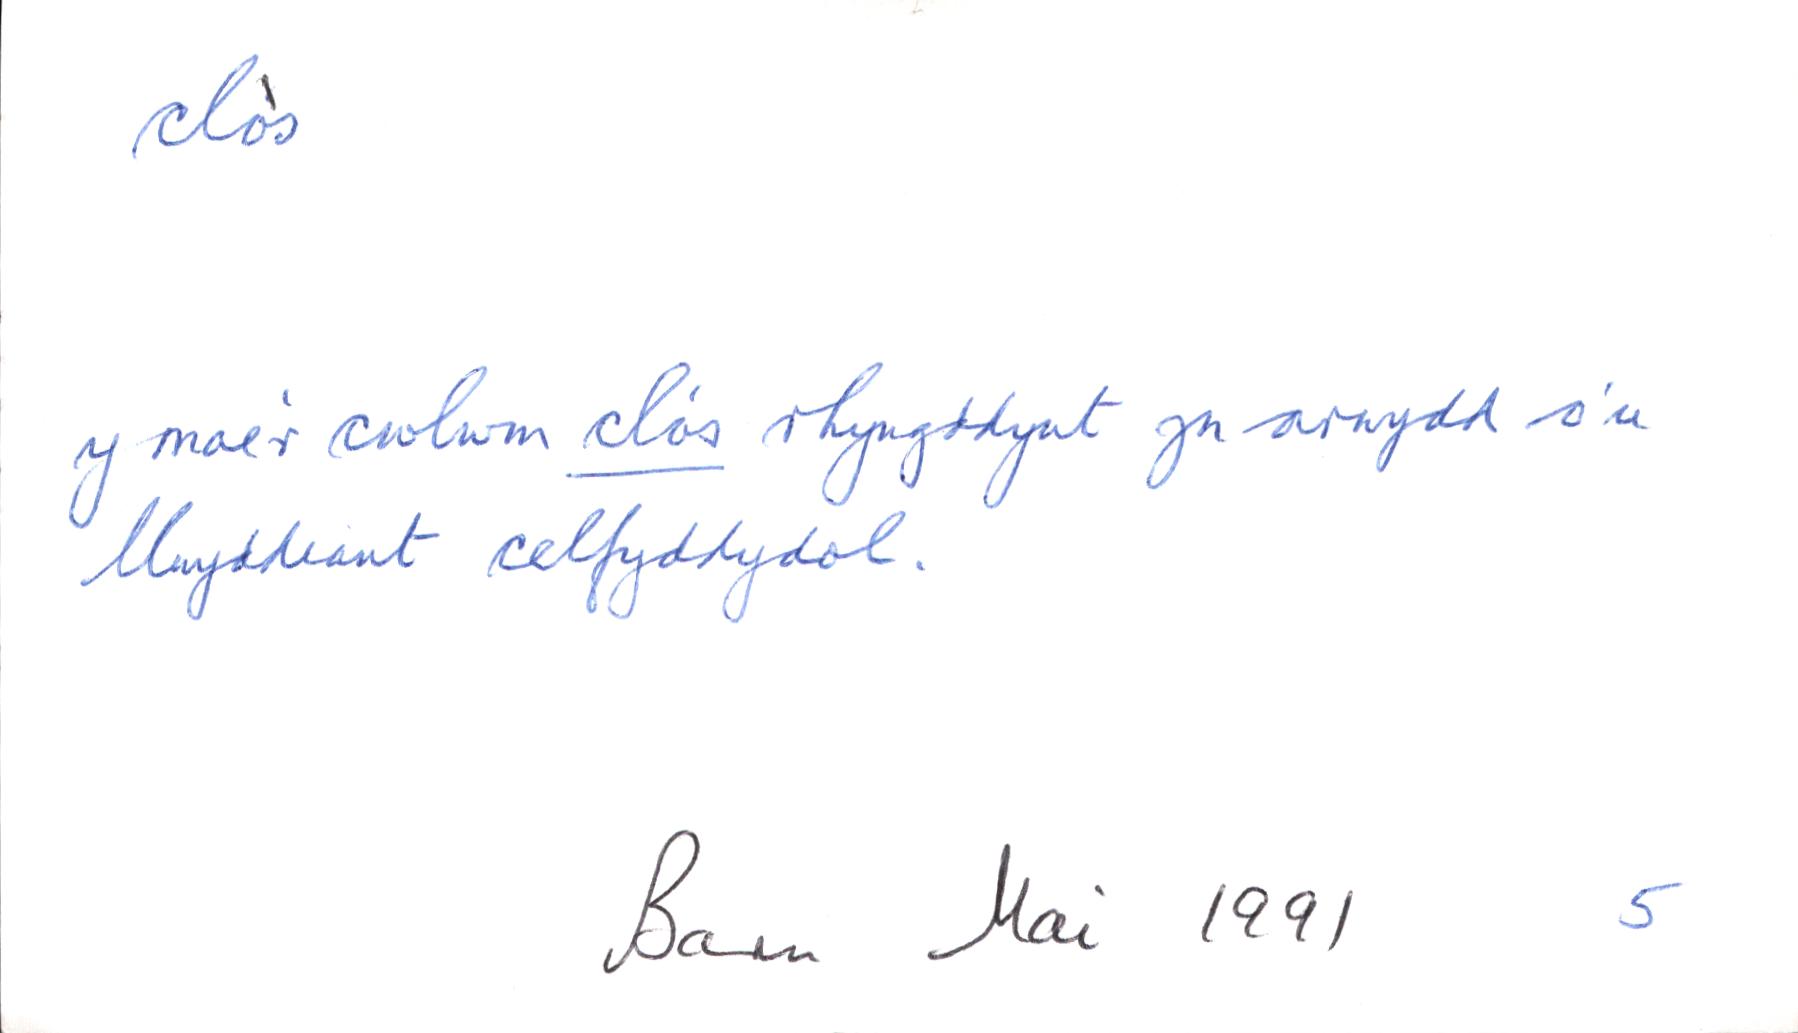 clòs
y mae'r cwlwm clós rhyngddynt yn arwydd o'u
llwyddiant celfyddydol.
Barn Mai 1991 5